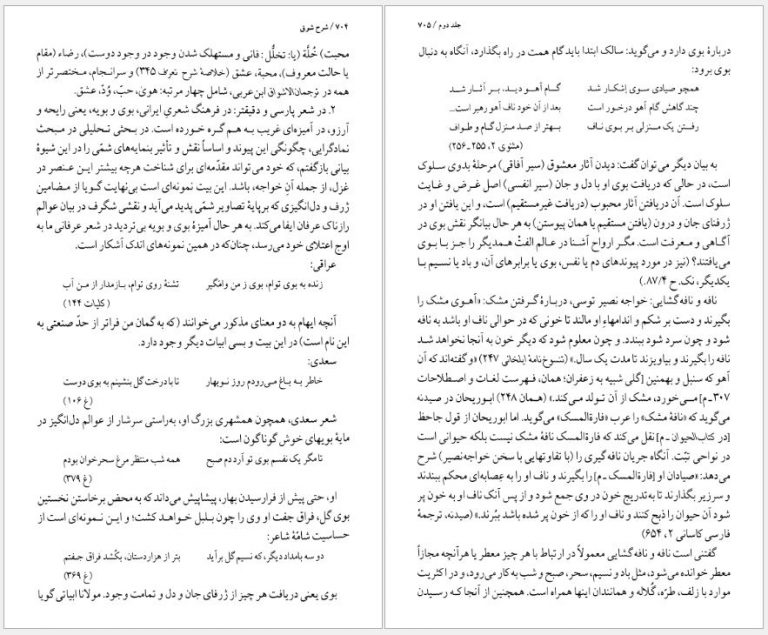 ۷۰۴ / شرح شوق
محبت) خُلَّة (یا: تخلُّل: فانی و مستهلک شدن وجود در وجود دوست)، رضاء (مقام
یا حالت معروف)، محبة، عشق (خلاصهٔ شرح تعرف ۳۴۵) و سرانجام، مختصرتر از
همه در ترجمان‌الاشواق ابن‌عربی، شامل چهار مرتبه: هویٰ، حبّ، وُدّ، عشق.
۲. در شعر پارسی و دقیقتر: در فرهنگ شعریِ ایرانی، بوی و بویه، یعنی رایحه و
آرزو، در آمیزه‌ای غریب به هم گره خورده است. در بحثی تحلیلی در مبحث
نمادگرایی، چگونگی این پیوند و اساساً نقش و تأثیر بنمایه‌های شمّی را در این شیوهٔ
بیانی بازگفتم، که خود می‌تواند مقدّمه‌ای برای شناخت هرچه بیشتر این عنصر در
غزل، از جمله آنِ خواجه، باشد. این بیت نمونه‌ای است بی‌نهایت گویا از مضامین
ژرف و دل‌انگیزی که برپایهٔ تصاویر شمّی پدید می‌آید و نقشی شگرف در بیان عوالم
رازناک عرفان ایفا می‌کند. به هر حال آمیزهٔ بوی و بویه بی‌تردید در شعر عرفانی ما به
اوج اعتلای خود می‌رسد، چنان‌که در همین نمونه‌های اندک آشکار است.
عراقی:
زنده به بوی توام، بوی ز من وامگیر تشنهٔ روی توام، بازمدار از من آب
(کلیات ۱۴۴)
آنچه ایهام به دو معنای مذکور می‌خوانند (که به‌گمان من فراتر از حدّ صنعتی به
این نام است) در این بیت و بسی ابیات دیگر وجود دارد.
سعدی:
خاطر به باغ می‌رودم روز نوبهار تا با درخت گل بنشینم به بوی دوست
(غ ۱۰۶)
شعر سعدی، همچون همشهری بزرگ او، به‌راستی سرشار از عوالم دل‌انگیز در
مایهٔ بویهای خوش گوناگون است:
تا مگر یک نفسم بوی تو آرد دم صبح همه شب منتظر مرغ سحرخوان بودم
(غ ۳۷۹)
او، حتی پیش از فرارسیدن بهار، پیشاپیش می‌داند که به محض برخاستن نخستین
بوی گل، فراق جفت او وی را چون بلبل خواهد کشت؛ و این نمونه‌ای است از
حساسیت شامّهٔ شاعر:
دو سه بامداد دیگر، که نسیم گل برآید بتر از هزاردستان، بکُشد فراق جفتم
(غ ۳۶۹)
بوی یعنی دریافت هر چیز از ژرفای جان و دل و تمامت وجود. مولانا ابیاتی گویا
جلد دوم / ۷۰۵
دربارهٔ بوی دارد و می‌گوید: سالک ابتدا باید گام همت در راه بگذارد، آنگاه به دنبال
بوی برود:
همچو صیادی سوی اِشکار شد گام آهو دید، بر آثار شد
چند گاهش گام آهو درخور است بعد از آن خود ناف آهو رهبر است...
رفتن یک منزلی بر بوی ناف بهتر از صد منزل گام و طواف
(مثنوی ۲، ۲۵۵-۲۵۶)
به بیان دیگر می‌توان گفت: دیدن آثار معشوق (سیر آفاقی) مرحلهٔ بدوی سلوک
است، در حالی که دریافت بوی او با دل و جان (سیر انفسی) اصل غرض و غایت
سلوک است. آن دریافتن آثار محبوب (دریافت غیرمستقیم) است، و این یافتن او در
ژرفنای جان و درون (یافتن مستقیم یا همان پیوستن) به هر حال بیانگر نقش بوی در
آگاهی و معرفت است. مگر ارواح آشنا در عالم الفتْ همدیگر را جز با بوی
می‌یافتند؟ (نیز در مورد پیوندهای دم یا نفس، بوی یا برابرهای آن، و باد یا نسیم با
یکدیگر، نک. ح ۸۷/۴.)
نافه و نافه‌گشایی: خواجه نصیر توسی، دربارهٔ گرفتن مشک: «آهوی مشک را
بگیرند و دست بر شکم و اندامهاءِ او مالند تا خونی که در حوالی ناف او باشد به نافه
شود و چون سرد شود ببندد. و چون معلوم شود که دیگر خون به آنجا نخواهد شد
نافه را بگیرند و بیاویزند تا مدت یک سال.» (تنسوخ‌نامهٔ ایلخانی ۲۴۷) «و گفته‌اند که آن
آهو که سنبل و بهمنین [گلی شبیه به زعفران؛ همان، فهرست لغات و اصطلاحات
۳۰۷-م] می‌خورد، مشک از آن تولد می‌کند.» (همان ۲۴۸) ابوریحان در صیدنه
می‌گوید که «نافهٔ مشک» را عرب «فارةالمسک» می‌گوید. اما ابوریحان از قول جاحظ
[در کتاب‌الحیوان-م] نقل می‌کند که فارةالمسک نافهٔ مشک نیست بلکه حیوانی است
در نواحی تبّت. آنگاه جریان نافه‌گیری را (با تفاوتهایی با سخن خواجه‌نصیر) شرح
می‌دهد: «صیادان او [فارةالمسک-م] را بگیرند و ناف او را به عِصابه‌ای محکم ببندند
و سرزیر بگذارند تا به‌تدریج خون در وی جمع شود و از پس آنک ناف او به خون پر
شود آن حیوان را ذبح کنند و ناف او را که از خون پر شده باشد ببُرند.» (صیدنه، ترجمهٔ
فارسی کاسانی ۲، ۶۵۴)
گفتنی است نافه و نافه‌گشایی معمولاً در ارتباط با هر چیز معطر یا هرآنچه مجازاً
معطر خوانده می‌شود، مثل باد و نسیم، سحر، صبح و شب به کار می‌رود، و در اکثریت
موارد با زلف، طرّه، گُلاله و همانندان اینها همراه است. همچنین از آنجا که رسیدن